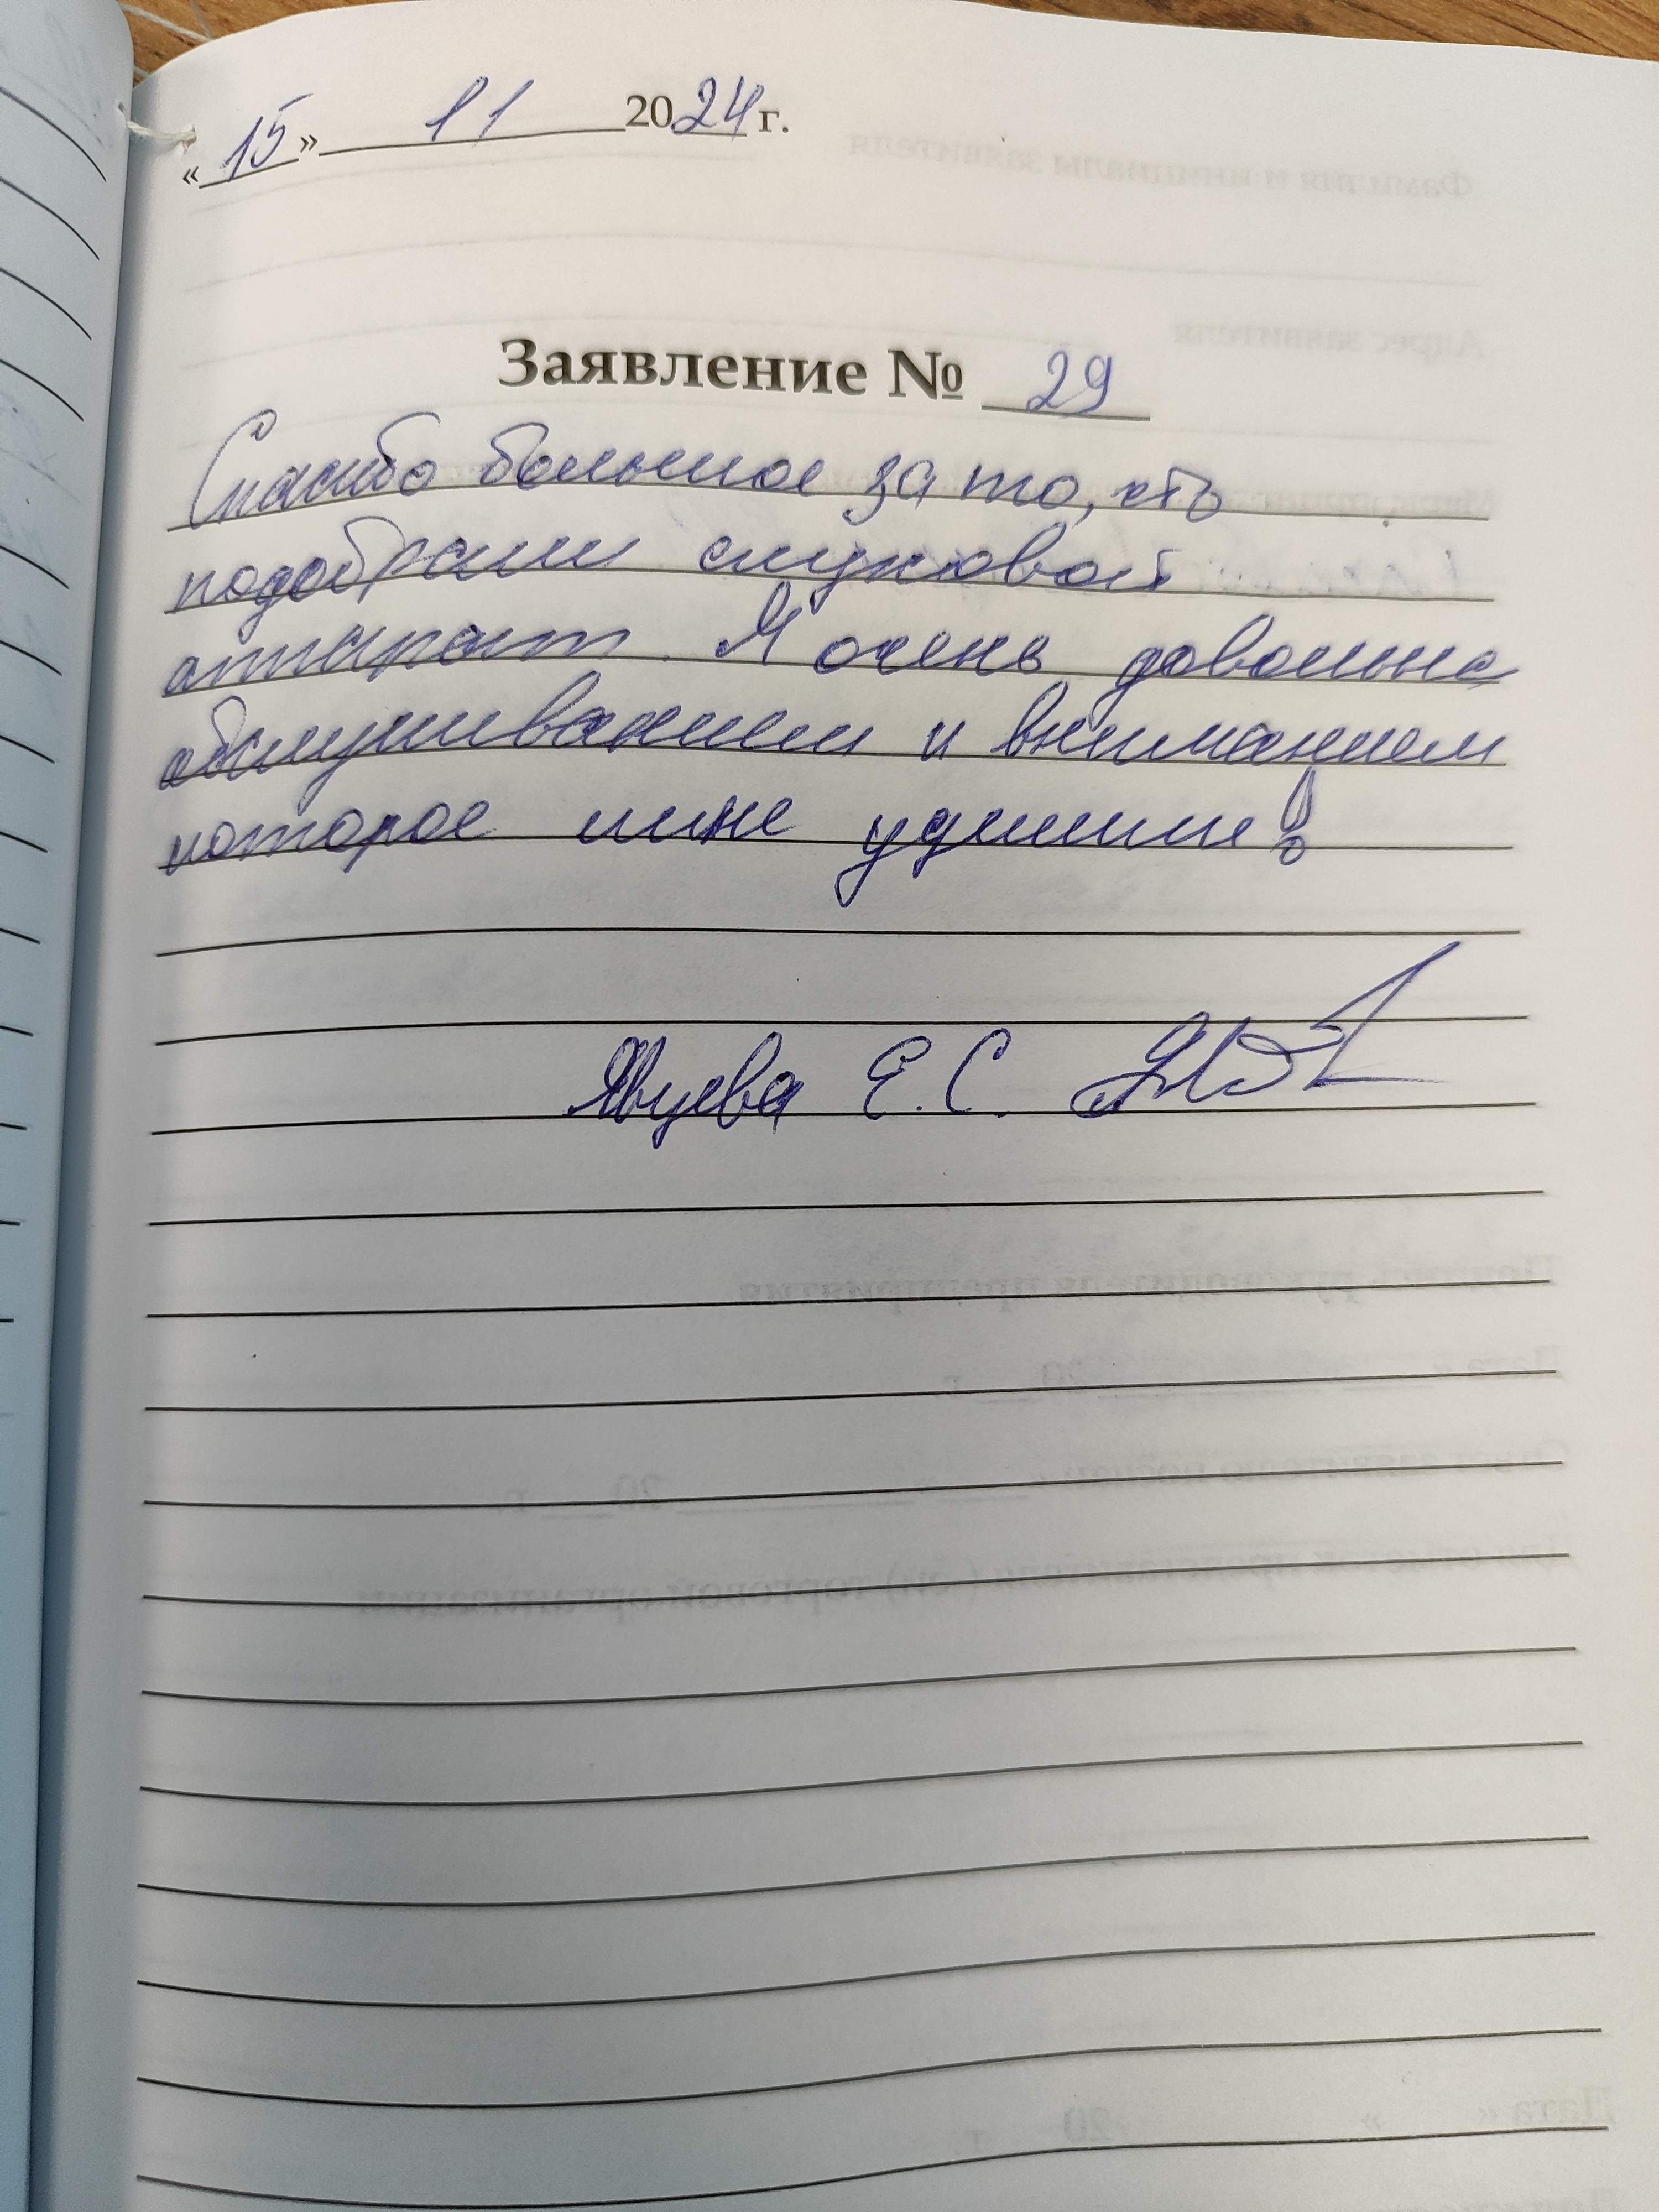 «15» 11 2024 г.
Заявление № 29
Спасибо большое за то, что
подобрали слуховой
аппарат. Я очень довольна
обслуживанием и вниманием
которое мне уделили!
Е. С.